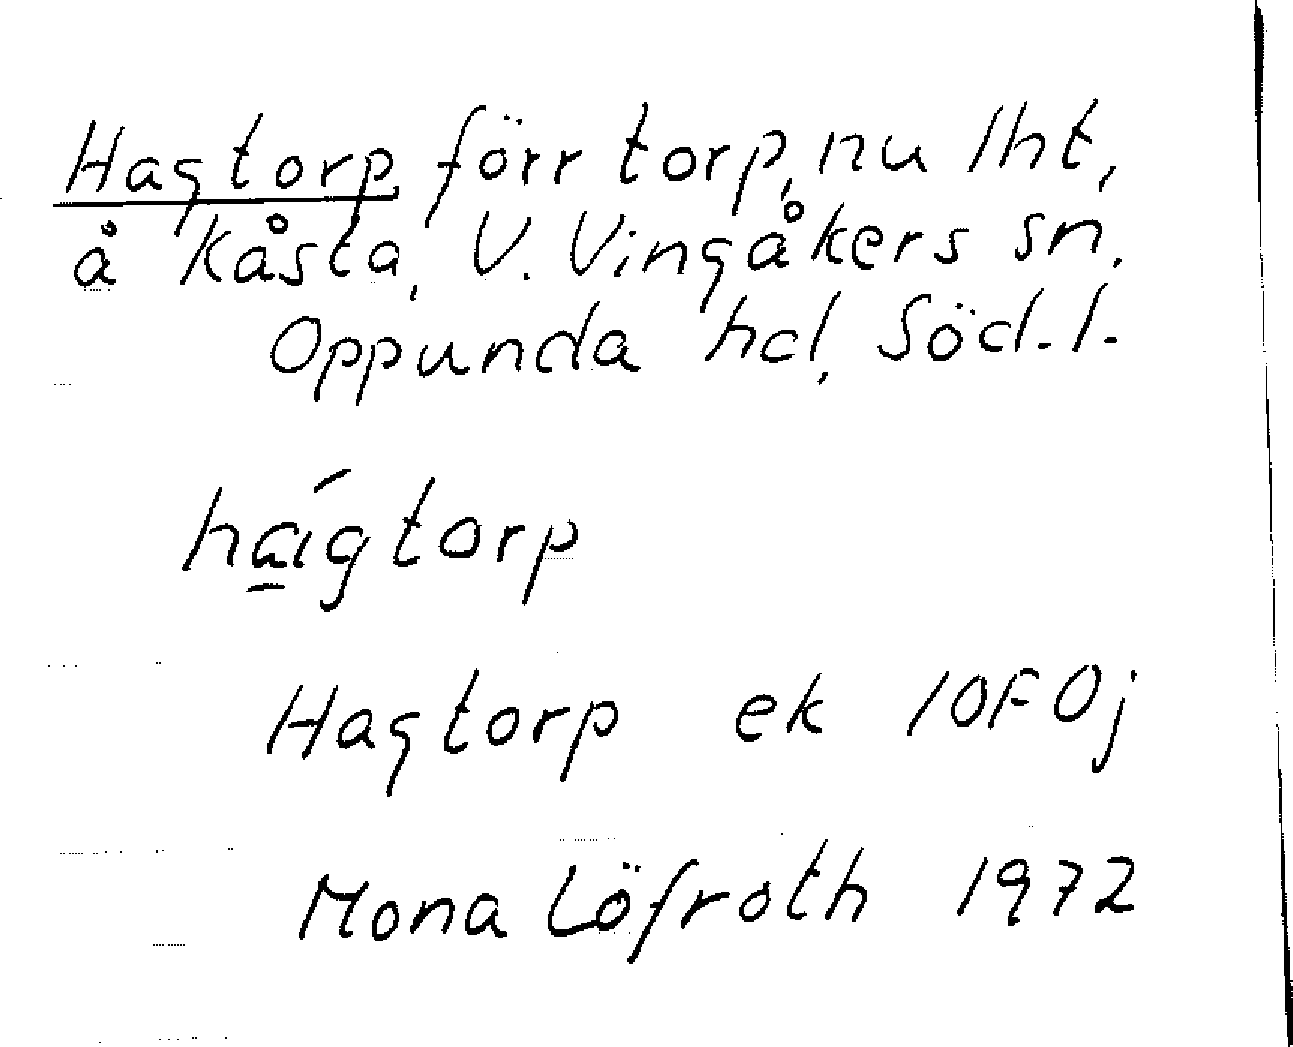 Hagtorp, förr torp, nu lht,
å Kåsta, V. Vingåkers sn,
Oppunda hd, Söd. l.
ha̱´gtorp
Hagtorp ek 10F0j
Mona Löfroth 1972